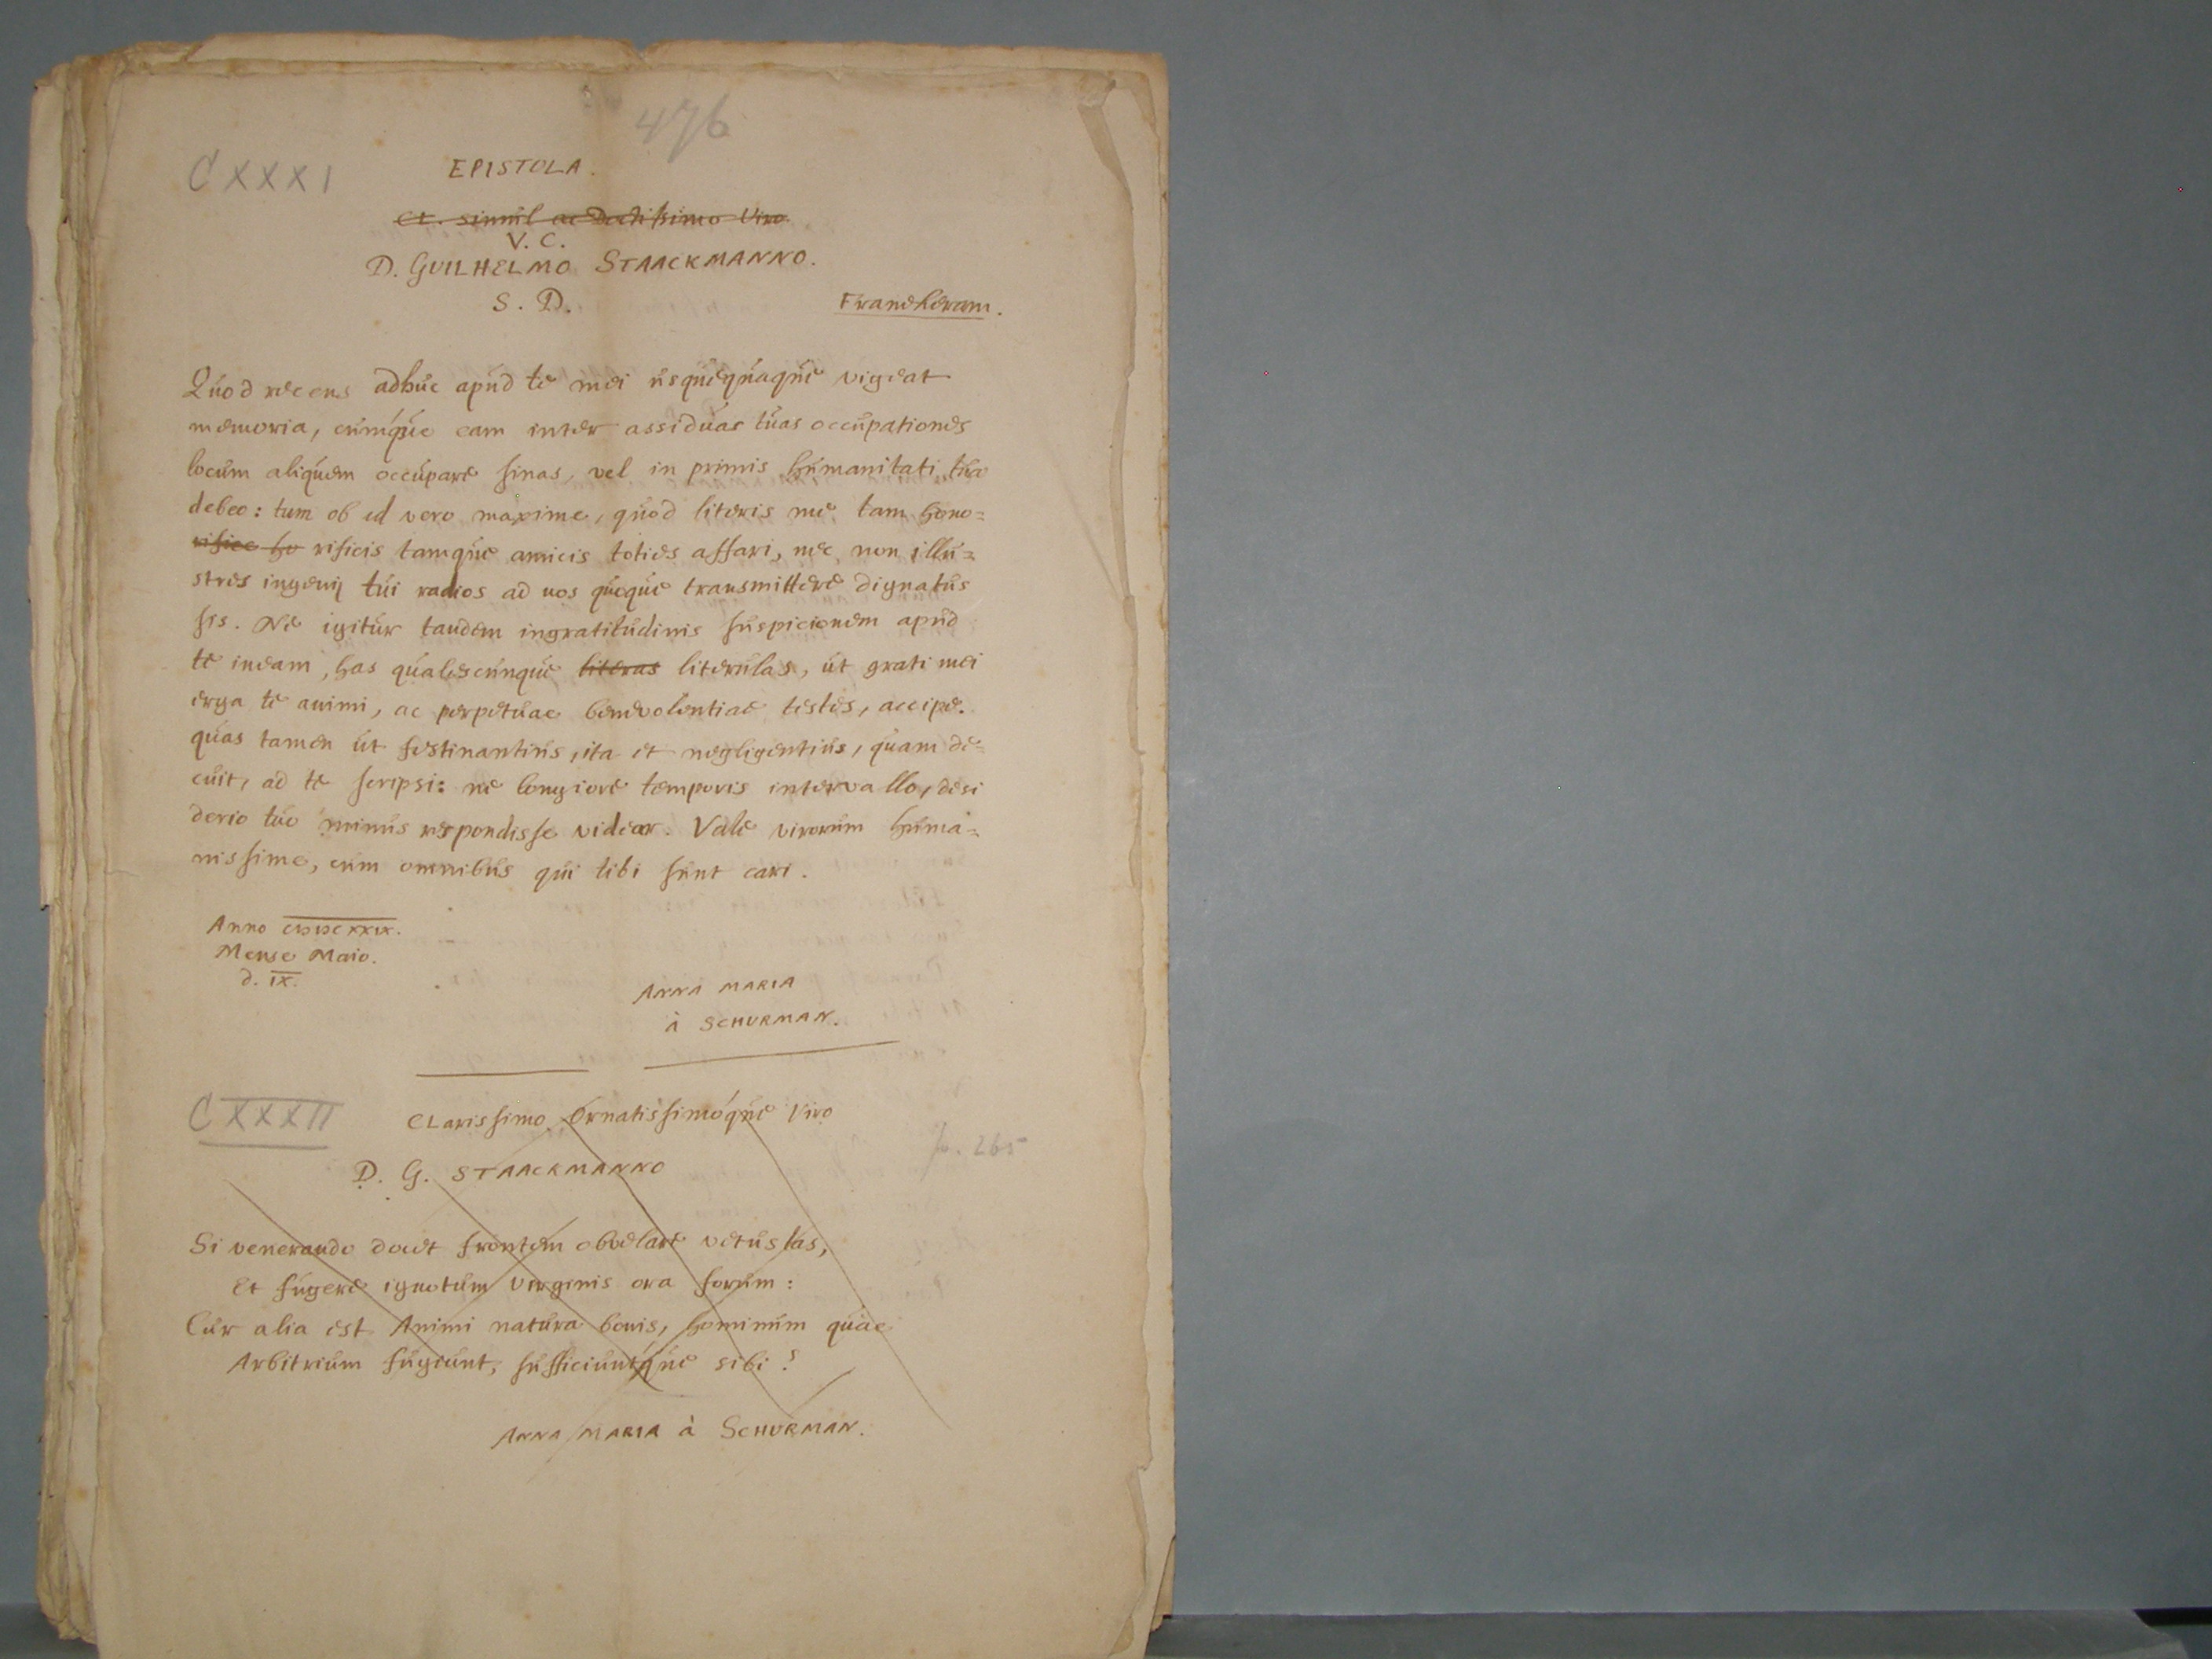 476
CXXXI
EPISTOLA.
Cl. simul ac Doctissimo Viro
V. C.
D. GUILHELMO STAACKMANNO.
S. D.
Franekeram.
Quod recens adhuc apud te mei usquequaque vigeat
memoria, cumque eam inter assiduas tuas occupationes
locum aliquem occupare sinas, vel in primis humanitati tuae
debeo: tum ob id vero maxime, quod literis me tam hono=
rifice ho rificis tamque amicis toties affari, nec non illu=
stres ingenij tui radios ad nos quoque transmittere dignatus
sis. Ne igitur tandem ingratitudinis suspicionem apud
te ineam, has qualescunque literas literulas, ut grati mei
erga te animi, ac perpetuae benevolentiae testes, accipe.
quas tamen ut festinantius, ita et negligentius, quam de=
cuit, ad te scripsi: ne longiore temporis intervallo, desi
derio tuo minus respondisse videar. Vale virorum huma=
nissime, cum omnibus qui tibi sunt cari.
Anno CIƆIƆCXXIX.
Mense Maio.
d. IX.
ANNA MARIA
à SCHURMAN.
CXXXII
CLarissimo Ornatissimóque Viro
p. 265
D. G. STAACKMANNO
Si venerando decet frontem obvelare vetustas,
Et fugere ignotum Virginis ora forum:
Cur alia est Animi natura bonis, hominum quae
Arbitrium fugiunt, sufficiuntque sibi?
ANNA MARIA à SCHURMAN.